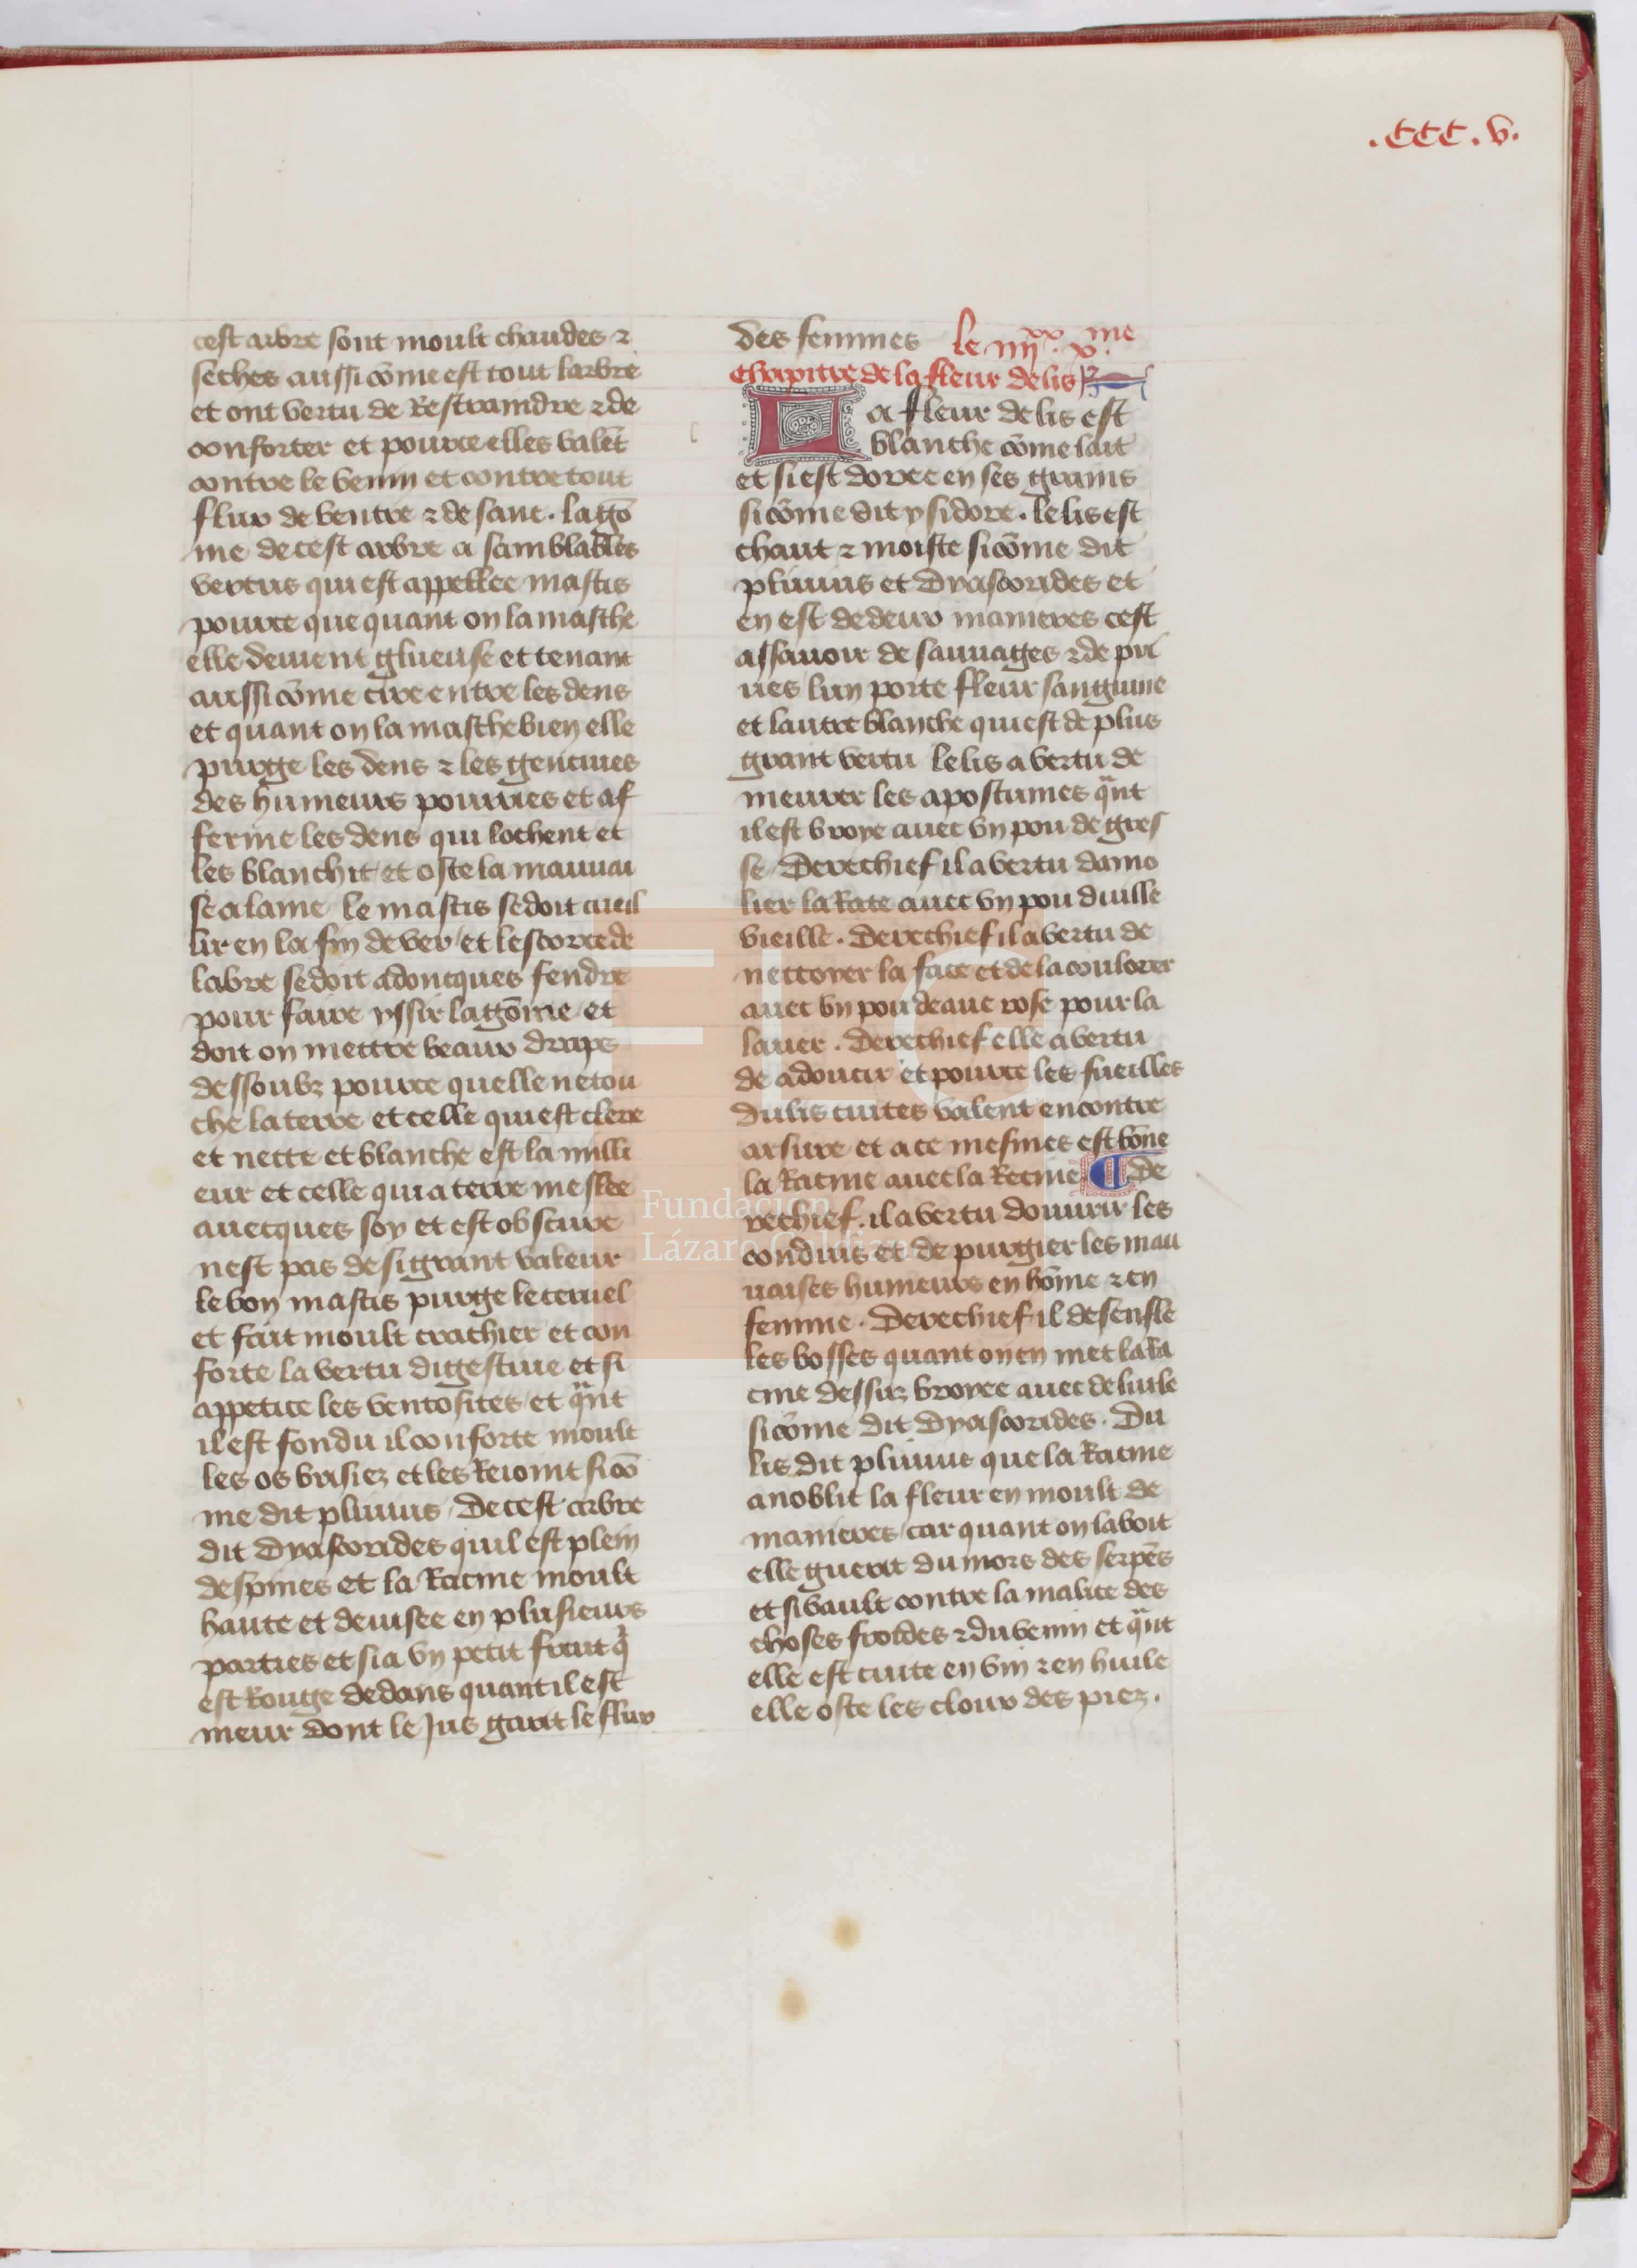 .CCC.v.
cest arbre sont moult chaudes ⁊
seches aussi cōme est tout larbre
et ont vertu de Restraindre ⁊ de
conforter et pource elles valēt
contre le venin et contre tout
flux de ventre ⁊ de sanc. la gō
me de cest arbre a samblables
vertus qui est appellee mastis
pource que quant on la masche
elle deuient glueuse et tenant
aussi cōme cire entre les dens
et quant on la masche bien elle
purge les dens ⁊ les genciues
des humeurs pourries et af
ferme les dens qui lochent et
les blanchit et oste la mauuai
se alaine le mastis se doit cueil
lir en la fin de ver et lescorce de
labre se doit adoncques fendre
pour faire yssir la gōme et
doit on mettre beaux draps
dessoubz pource quelle ne tou
che la terre et celle qui est clere
et nette et blanche est la milli
eur et celle qui a terre meslee
auecques soy et est obscure
nest pas de si grant valeur
le bon mastis purge le ceruel
et fait moult crachier et con
forte la vertu digestiue et si
appetice les ventosites et qᷓnt
il est fondu il conforte moult
les os brisiez et les Reioint si cō
me dit plinius De cest arbre
dit Dyascorides quil est plein
despines et la Racine moult
haute et deuisee en plusieurs
parties et si a vn petit fruit q̇
est Rouge dedans quant il est
meur dont le Jus garit le flux
des femmes le iiijˣˣ.x.ᵐᵉ
chappitre de la fleur de lis
La fleur de lis est
blanche cōme lait
et si est doree en ses grains
si cōme dit ysidore. le lis est
chaut ⁊ moiste si cōme dit
plinius et Dyascorides et
en est de deux manieres cest
assauoir de sauuages ⁊ de pri
ues lun porte fleur sanguine
et lautre blanche qui est de plus
grant vertu le lis a vertu de
meurer les apostumes qᷓnt
il est broye auec vn pou de gres
se Derechief il a vertu damo
lier la Rate auec vn pou duille
vieille. Derechief il a vertu de
nettoyer la face et de la coulorer
auec vn pou deaue rose pour la
lauer. Derechief elle a vertu
de adoucir et pource les fueilles
du lis cuites valent encontre
arsure et a ce mesmes est bōne
la Racine auec la Recine ¶ De
rechief. il a vertu douurir les
conduis et de purgier les mau
uaises humeurs en hōme ⁊ en
femme. Derechief il desenfle
les bosses quant on en met la Ra
cine dessuz broyee auec de luile
si cōme dit Dyascorides. Du
lis dit plinius que la Racine
anoblit la fleur en moult de
manieres car quant on la boit
elle guerit du mors des serpēs
et si vault contre la malice des
choses froides ⁊ du venin et qᷓnt
elle est cuite en vin ⁊ en huile
elle oste les cloux des piez.
Fundación
Lázaro Galdiano